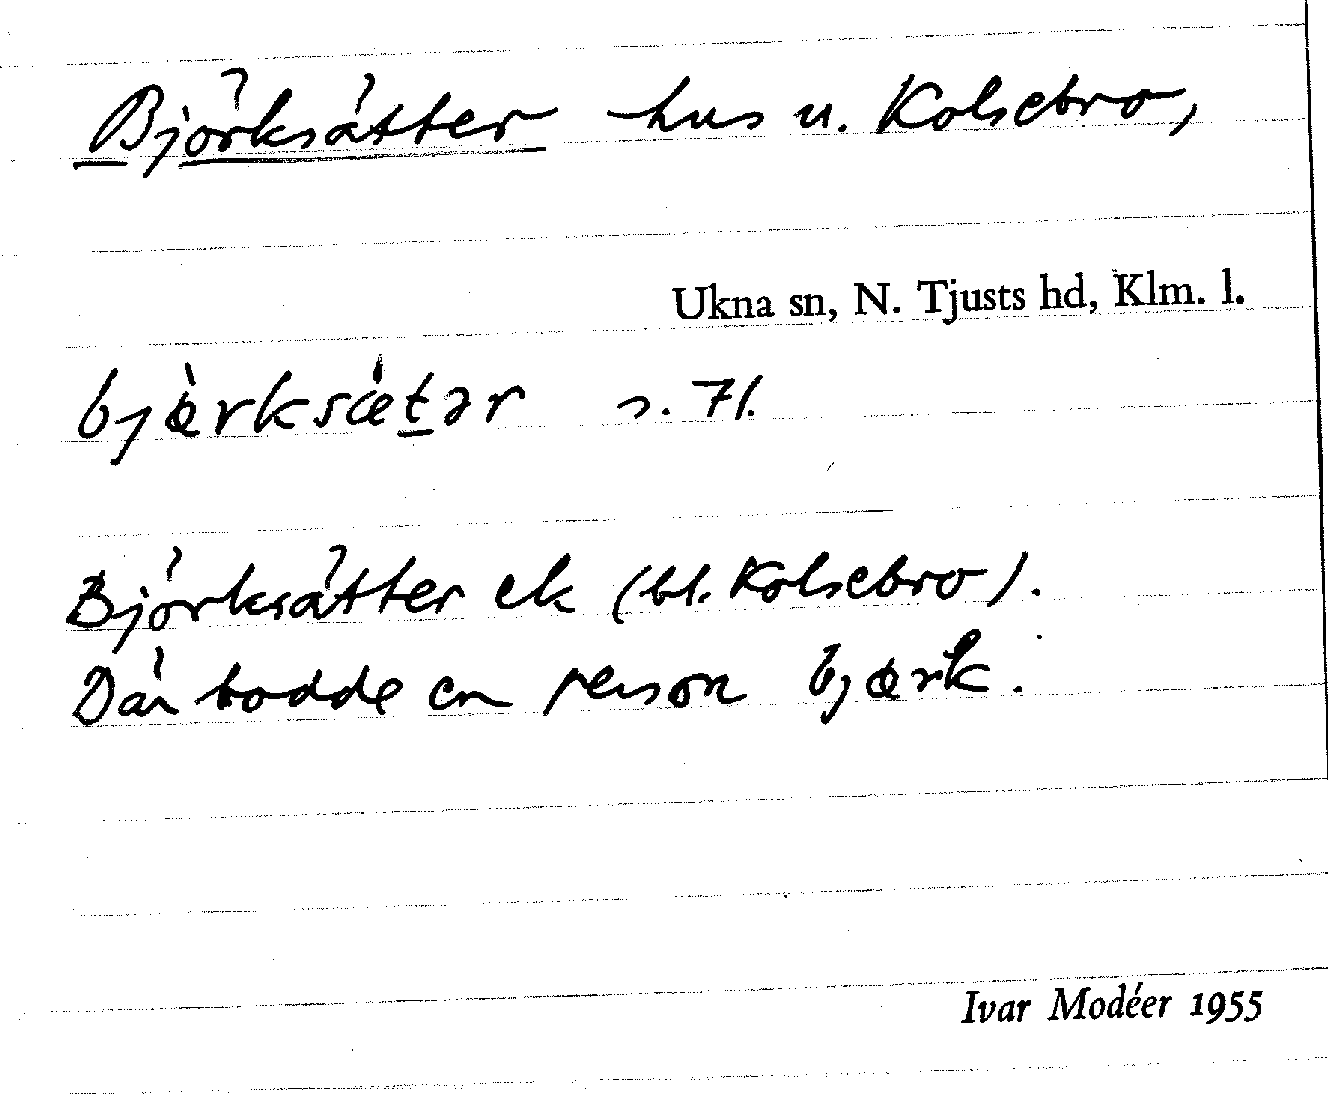 Björksätter hus u. Kolsebro,
Ukna sn, N. Tjusts hd, Klm. l.
bjø̀rksæ̀t̲ər s. 71.
Björksätter ek (bl. Kolsebro).
Där bodde en person bjørk.
Ivar Modéer 1955